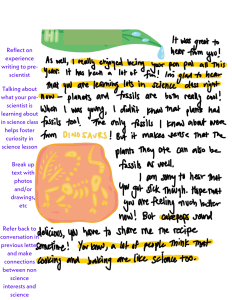 HI
It was great to
hear from you!
As well, I really enjoyed being your pen pal all this
year. It has been a lot of fun! I'm glad to hear
that you are learning lots in science class right
now - planets and fossils are both really cool!
When I was young, I didn't know that plants had
fossils too! The only fossils I knew about were
from DINOSAURS! But it makes sense that the
plants they ate can also be
fossils as well.
I am sorry to hear that
you got sick though. Hope that
you are feeling much better
now! But sound
delicious, you have to share me the recipe
sometime! You know, a lot of people think that
cooking and baking are like science too.
Reflect on
experience
writing to pre-
scientist
Talking about
what your pre-
scientist is
learning about
in science class
helps foster
curiosity in
science lesson
Break up
text with
photos
and/or
drawings,
etc
Refer back to
conversation in
previous letter
and make
connections
between non
science
interests and
science